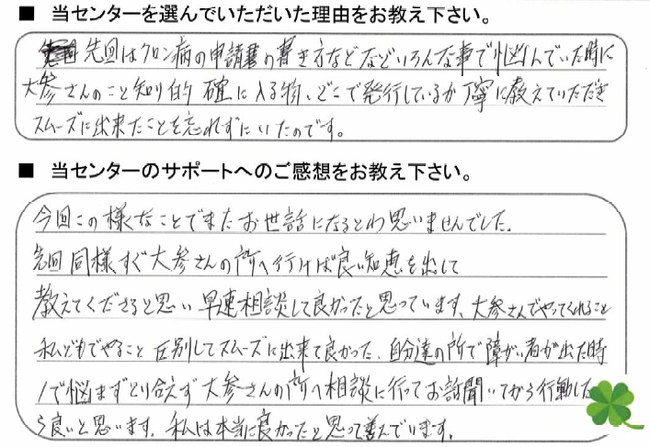 ■ 当センターを選んでいただいた理由をお教え下さい。
先回はクロン病の申請書の書き方などなどいろんな事で悩んでいた時に
大参さんのこと知り的確に入る物、どこで発行しているか丁寧に教えていただき
スムーズに出来たことを忘れずにいたのです。
■ 当センターのサポートへのご感想をお教え下さい。
今回この様なことでまたお世話になるとわ思いませんでした。
先回同様すぐ大参さんの所へ行けば良い知恵を出して
教えてくださると思い早速相談して良かったと思っています、大参さんでやってくれること
私どもでやること区別してスムーズに出来て良かった、自分達の所で障がい者が出た時
1で悩まずとり合えず大参さんの所へ相談に行ってお話聞いてから行動した
ら良いと思います、私は本当に良かったと思って喜んでいます。